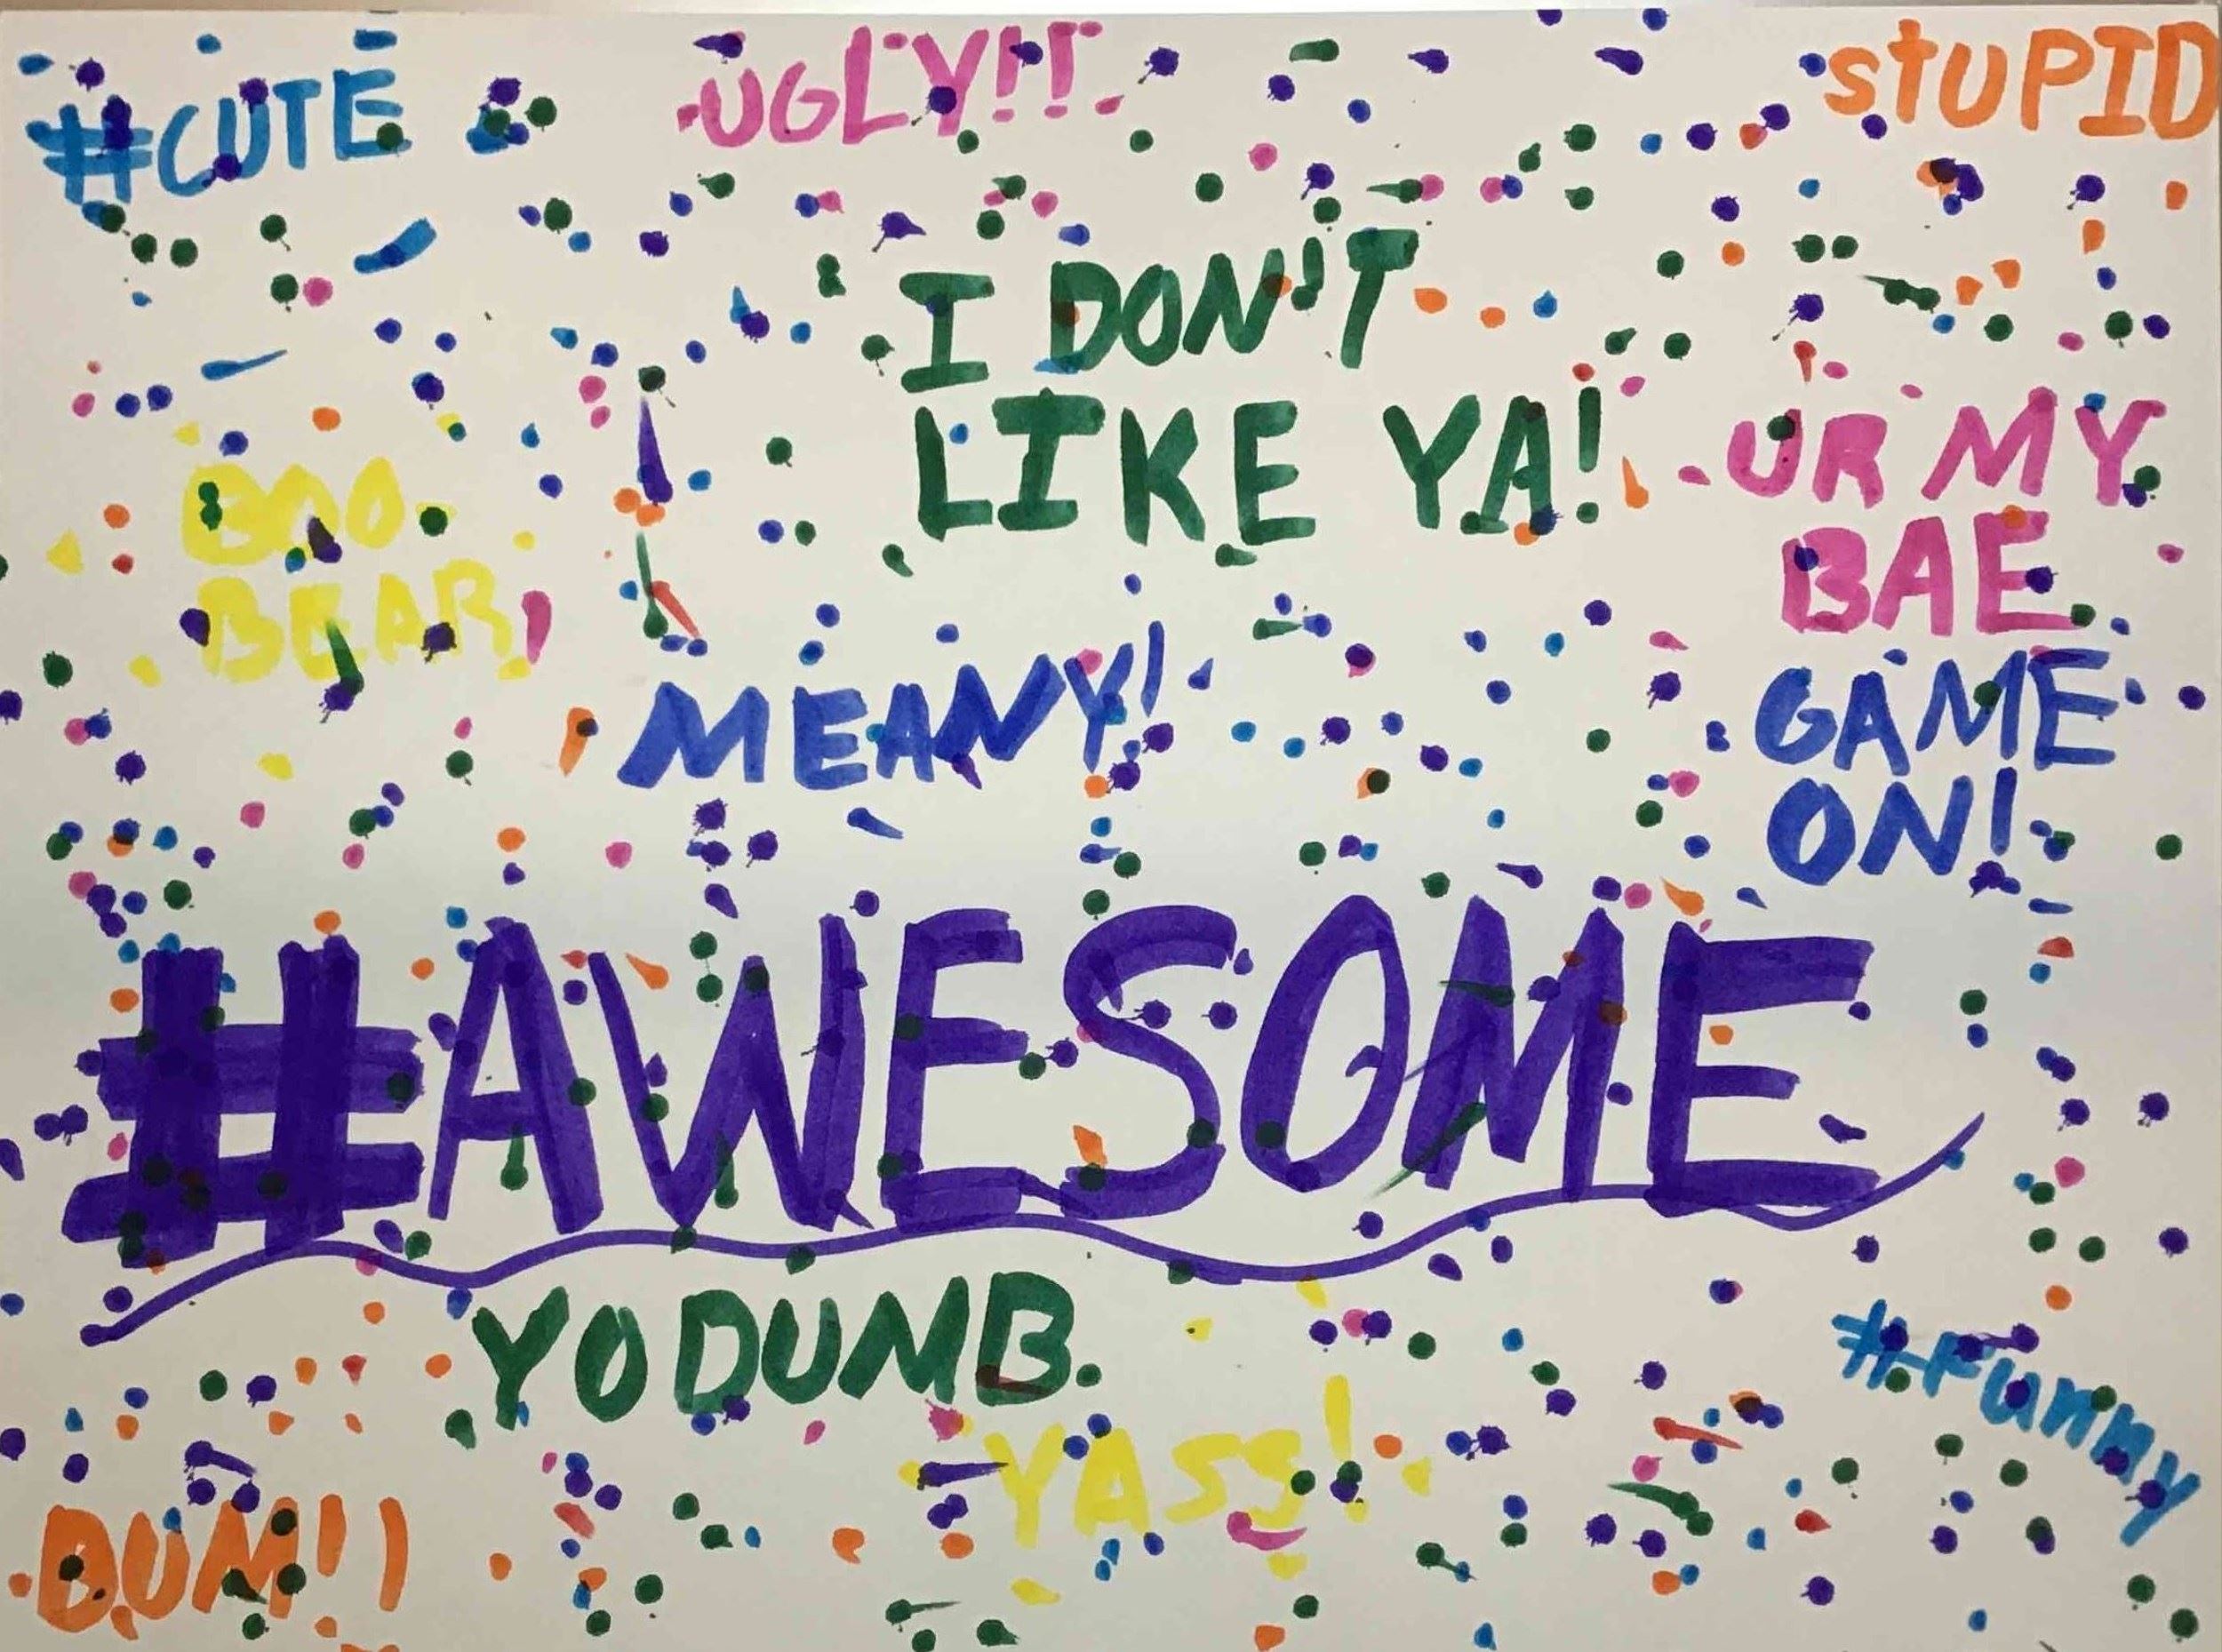 #CUTE
UGLY!!
stUPID
I DON'T
LIKE YA!
UR MY
BAE
BOO
BEAR!
MEANY!
GAME
ON!
#AWESOME
YO DUMB.
#Funny
YASS!
DUM!!